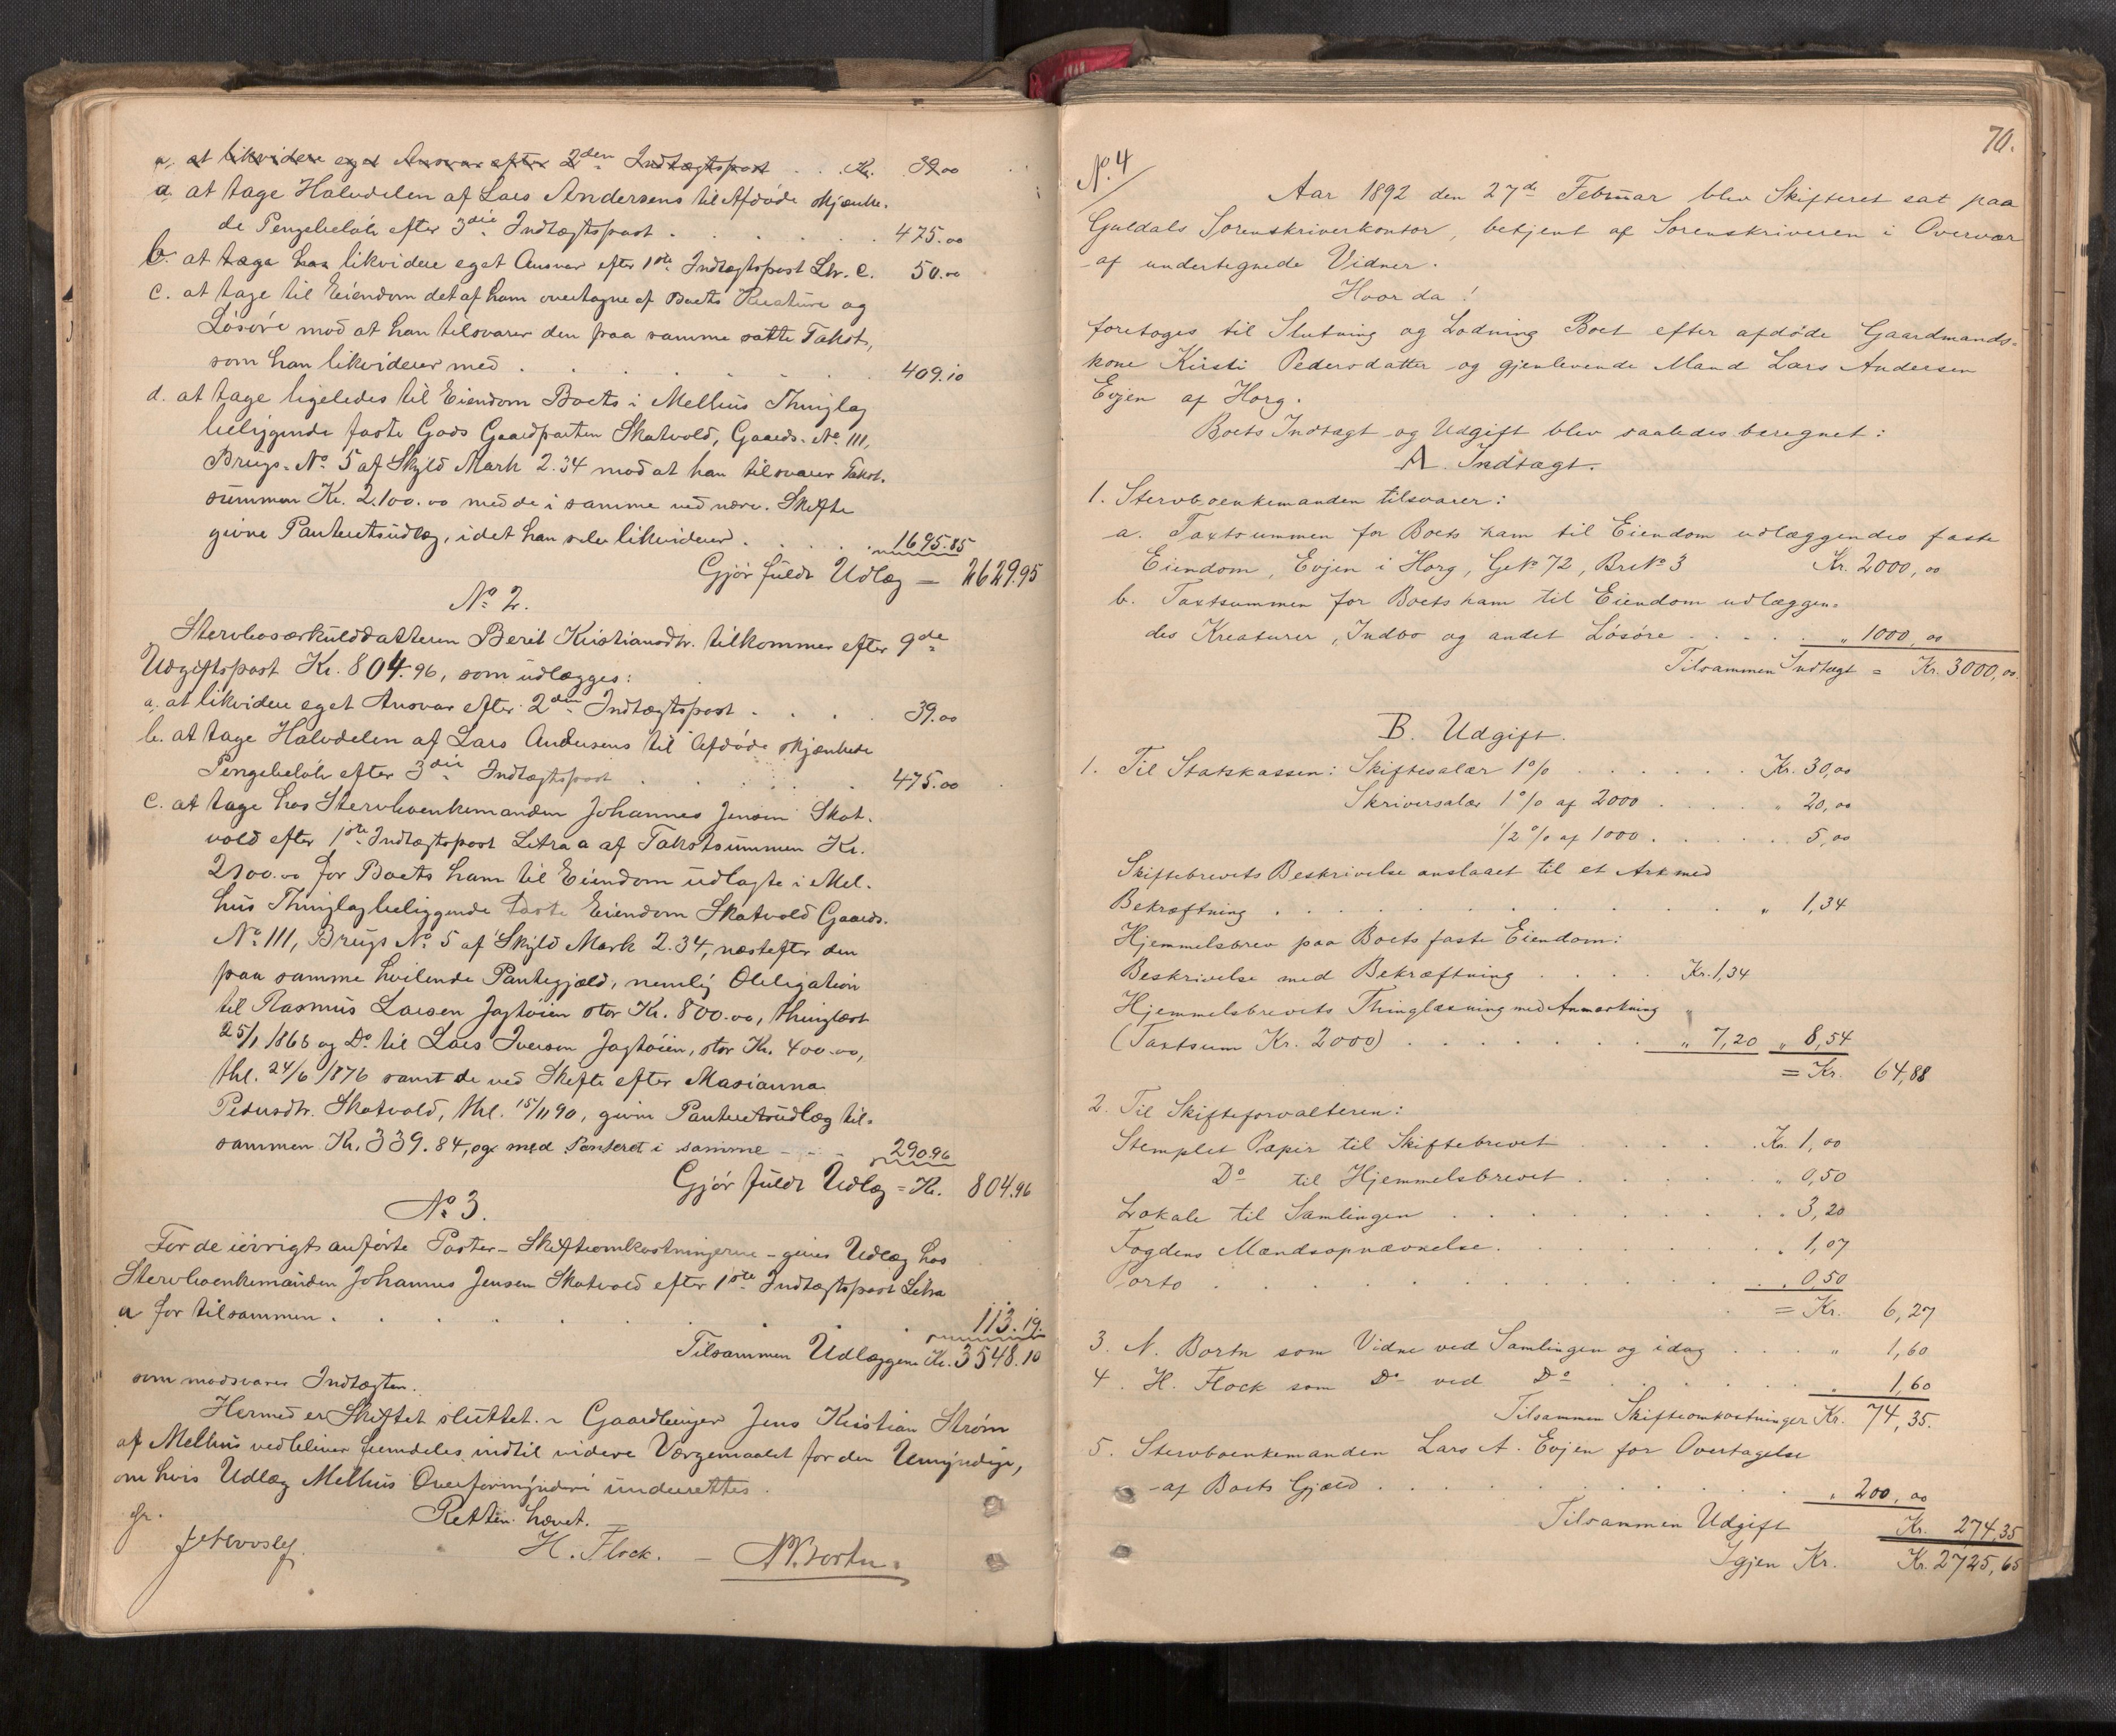 a. at likvidere eget Ansvar efter 2den Indtægtspost . . . Kr. 39.00
a. at tage Halvdelen af Lars Andersens til Afdøde skjænke-
de Pengebeløb efter 3die Indtægtspost . . . . . . 475.00
b. at tage hos likvidere eget Ansvar efter 1ste Indtægtspost Ltr. c. 50.00
c. at tage til Eiendom det af ham overtagne af Boets Kreature og
Løsøre mod at han tilsvarer den paa samme satte Takst,
som han likviderer med . . . . . . . 409.10
d. at tage ligeledes til Eiendom Boets i Melhus Thinglag
beliggende faste Gods Gaardparten Skatvold, Gaards-No 111,
Brugs-No 5 af Skyld Mark 2.34 mod at han tilsvarer Takst-
summen Kr. 2.100.00 med de i samme ved nærv. Skifte
givne Panteretsudlæg, idet han selv likviderer . . . . . 1695.85
Gjør fuldt Udlæg — 2629.95
No 2.
Stervbosærkulddatteren Berit Kristiansdtr. tilkommer efter 9de
Udgiftspost Kr. 804.96, som udlægges:
a. at likvidere eget Ansvar efter 2den Indtægtspost . . . . 39.00
b. at tage Halvdelen af Lars Andersens til Afdøde skjænkede
Pengebeløb efter 3die Indtægtspost . . . . . . 475.00
c. at tage hos Stervboenkemanden Johannes Jensen Skat-
vold efter 1ste Indtægtspost Litra a af Takstsummen Kr.
2100.00 for Boets ham til Eiendom udlagte i Mel-
hus Thinglag beliggende faste Eiendom Skatvold Gaards-
No 111, Brugs No 5 af Skyld Mark 2.34, næstefter den
paa samme hvilende Pantegjæld, nemlig Obligation
til Rasmus Larsen Jagtøien stor Kr. 800.00, thinglæst
25/1 1866 og Do til Lars Iversen Jagtøien, stor Kr. 400.00,
thl. 24/6 1876 samt de ved Skifte efter Marianna
Pedersdtr. Skatvold, thl. 15/11 90, givne Panteretsudlæg til-
sammen Kr. 339.84, og med Panteret i samme - - - 290.96
Gjør fuldt Udlæg = Kr. 804.96
No 3.
For de iøvrigt anførte Poster - Skifteomkostningerne - gives Udlæg hos
Stervboenkemanden Johannes Jensen Skatvold efter 1ste Indtægtspost Litra
a for tilsammen . . . . . . . . . 113.19.
Tilsammen Udlæggene Kr. 3548.10
som modsvarer Indtægten.
Hermed er Skiftet sluttet. ~ Gaardbruger Jens Kristian Strøm
af Melhus vedbliver fremdeles indtil videre Værgemaalet for den Umyndige,
om hvis Udlæg Melhus Overformynderi underrettes.
Retten hævet.
H. Flock. — N. Bortn.
70.
No. 4
Aar 1892 den 27de Februar blev Skifteret sat paa
Guldals Sorenskriverkontor, betjent af Sorenskriveren i Overvær
af undertegnede Vidner.
Hvor da!
foretoges til Slutning og Lodning Boet efter afdøde Gaardmands-
kone Kirsti Pedersdatter og gjenlevende Mand Lars Andersen
Evjen af Horg.
Boets Indtægt og Udgift blev saaledes beregnet:
A. Indtægt.
1. Stervboenkemanden tilsvarer:
a. Taxtsummen for Boets ham til Eiendom udlæggendes faste
Eiendom, Evjen i Horg, G. No 72, Br. No 3 Kr. 2000,00
b. Taxtsummen for Boets ham til Eiendom udlæggen-
des Kreaturer, Indbo og andet Løsøre . . . . . " 1000,00
Tilsammen Indtægt = Kr. 3000,00.
B. Udgift.
1. Til Statskassen: Skiftesalær 1% . . . . . . Kr. 30,00
Skriversalær 1% af 2000 . . . . " 20,00
1/2 % af 1000 . . . . . " 5,00
Skiftebrevets Beskrivelse anslaaet til et Ark med
Bekræftning . . . . . . . . . . . " 1,34
Hjemmelsbrev paa Boets faste Eiendom:
Beskrivelse med Bekræftning . . . . Kr. 1,34
Hjemmelsbrevets Thinglæsning med Anmærkning
(Taxtsum Kr. 2000) . . . . . . . " 7,20 " 8,54
= Kr. 64,88
2. Til Skifteforvalteren:
Stemplet Papir til Skiftebrevet . . . . . Kr. 1,00
Do til Hjemmelsbrevet . . . . . " 0,50
Lokale til Samlingen . . . . . . . . . " 3,20
Fogdens Mandsopnævnelse . . . . . . . " 1,07
Porto . . . . . . . . . . . . . . " 0,50
= Kr. 6,27
3. N. Bortn som Vidne ved Samlingen og idag . . . " 1,60
4. H. Flock som Do ved Do . . . . . . " 1,60
Tilsammen Skifteomkostninger Kr. 74,35.
5. Stervboenkemanden Lars A. Evjen for Overtagelse
af Boets Gjæld . . . . . . . . . . . " 200,00
Tilsammen Udgift Kr. 274,35
Igjen Kr. Kr. 2725,65